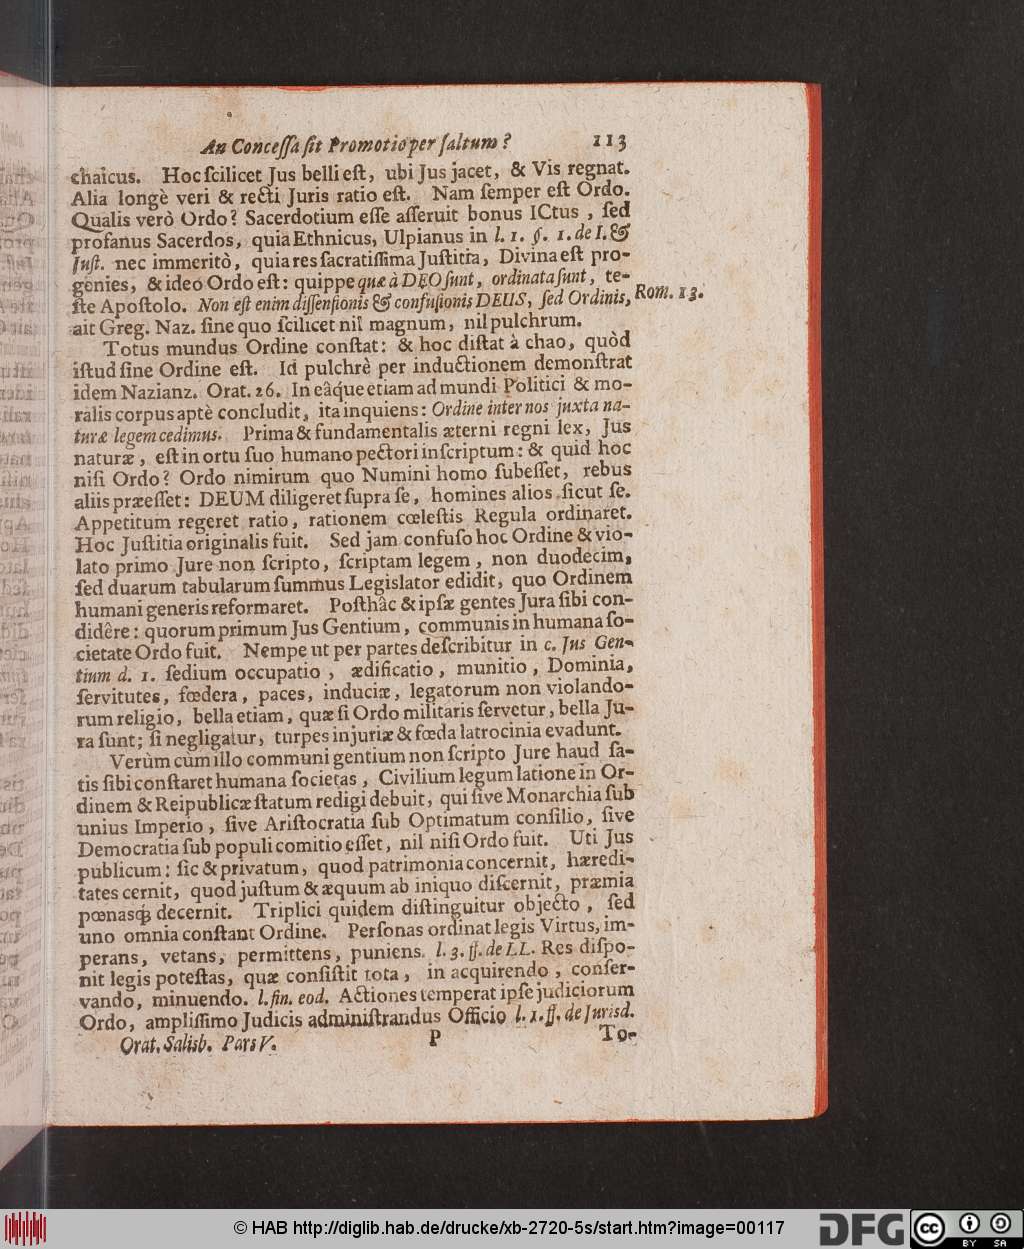 An Conceſſa ſit Promotio per ſaltum? 113
chaicus. Hoc ſcilicet Jus belli eſt, ubi Jus jacet, & Vis regnat.
Alia longè veri & recti Juris ratio eſt. Nam ſemper eſt Ordo.
Qualis verò Ordo? Sacerdotium eſſe aſſeruit bonus ICtus, ſed
profanus Sacerdos, quia Ethnicus, Ulpianus in l. 1. §. 1. de I. &
Juſt. nec immeritò, quia res ſacratiſſima Juſtitia, Divina eſt pro-
genies, & ideo Ordo eſt: quippe quæ à DEO ſunt, ordinata ſunt, te-
ſte Apoſtolo. Non eſt enim diſſenſionis & confuſionis DEUS, ſed Ordinis, Rom. 13.
ait Greg. Naz. ſine quo ſcilicet nil magnum, nil pulchrum.
Totus mundus Ordine conſtat: & hoc diſtat à chao, quòd
iſtud ſine Ordine eſt. Id pulchrè per inductionem demonſtrat
idem Nazianz. Orat. 26. In eâque etiam ad mundi Politici & mo-
ralis corpus aptè concludit, ita inquiens: Ordine inter nos juxta na-
turæ legem cedimus. Prima & fundamentalis æterni regni lex, Jus
naturæ, eſt in ortu ſuo humano pectori inſcriptum: & quid hoc
niſi Ordo? Ordo nimirum quo Numini homo ſubeſſet, rebus
aliis præeſſet: DEUM diligeret ſupra ſe, homines alios ſicut ſe.
Appetitum regeret ratio, rationem cœleſtis Regula ordinaret.
Hoc Juſtitia originalis fuit. Sed jam confuſo hoc Ordine & vio-
lato primo Jure non ſcripto, ſcriptam legem, non duodecim,
ſed duarum tabularum ſummus Legislator edidit, quo Ordinem
humani generis reformaret. Poſthâc & ipſæ gentes Jura ſibi con-
didêre: quorum primum Jus Gentium, communis in humana ſo-
cietate Ordo fuit. Nempe ut per partes deſcribitur in c. Jus Gen-
tium d. 1. ſedium occupatio, ædificatio, munitio, Dominia,
ſervitutes, fœdera, paces, induciæ, legatorum non violando-
rum religio, bella etiam, quæ ſi Ordo militaris ſervetur, bella Ju-
ra ſunt; ſi negligatur, turpes injuriæ & fœda latrocinia evadunt.
Verùm cùm illo communi gentium non ſcripto Jure haud ſa-
tis ſibi conſtaret humana ſocietas, Civilium legum latione in Or-
dinem & Reipublicæ ſtatum redigi debuit, qui ſive Monarchia ſub
unius Imperio, ſive Ariſtocratia ſub Optimatum conſilio, ſive
Democratia ſub populi comitio eſſet, nil niſi Ordo fuit. Uti Jus
publicum: ſic & privatum, quod patrimonia concernit, hæredi-
tates cernit, quod juſtum & æquum ab iniquo diſcernit, præmia
pœnasq́; decernit. Triplici quidem diſtinguitur objecto, ſed
uno omnia conſtant Ordine. Perſonas ordinat legis Virtus, im-
perans, vetans, permittens, puniens. l. 3. ff. de LL. Res diſpo-
nit legis poteſtas, quæ conſiſtit tota, in acquirendo, conſer-
vando, minuendo. l. fin. eod. Actiones temperat ipſe judiciorum
Ordo, ampliſſimo Judicis adminiſtrandus Officio l. 1. ff. de Jurisd.
Orat. Salisb. Pars V. P To-
© HAB http://diglib.hab.de/drucke/xb-2720-5s/start.htm?image=00117
DFG
cc BY SA